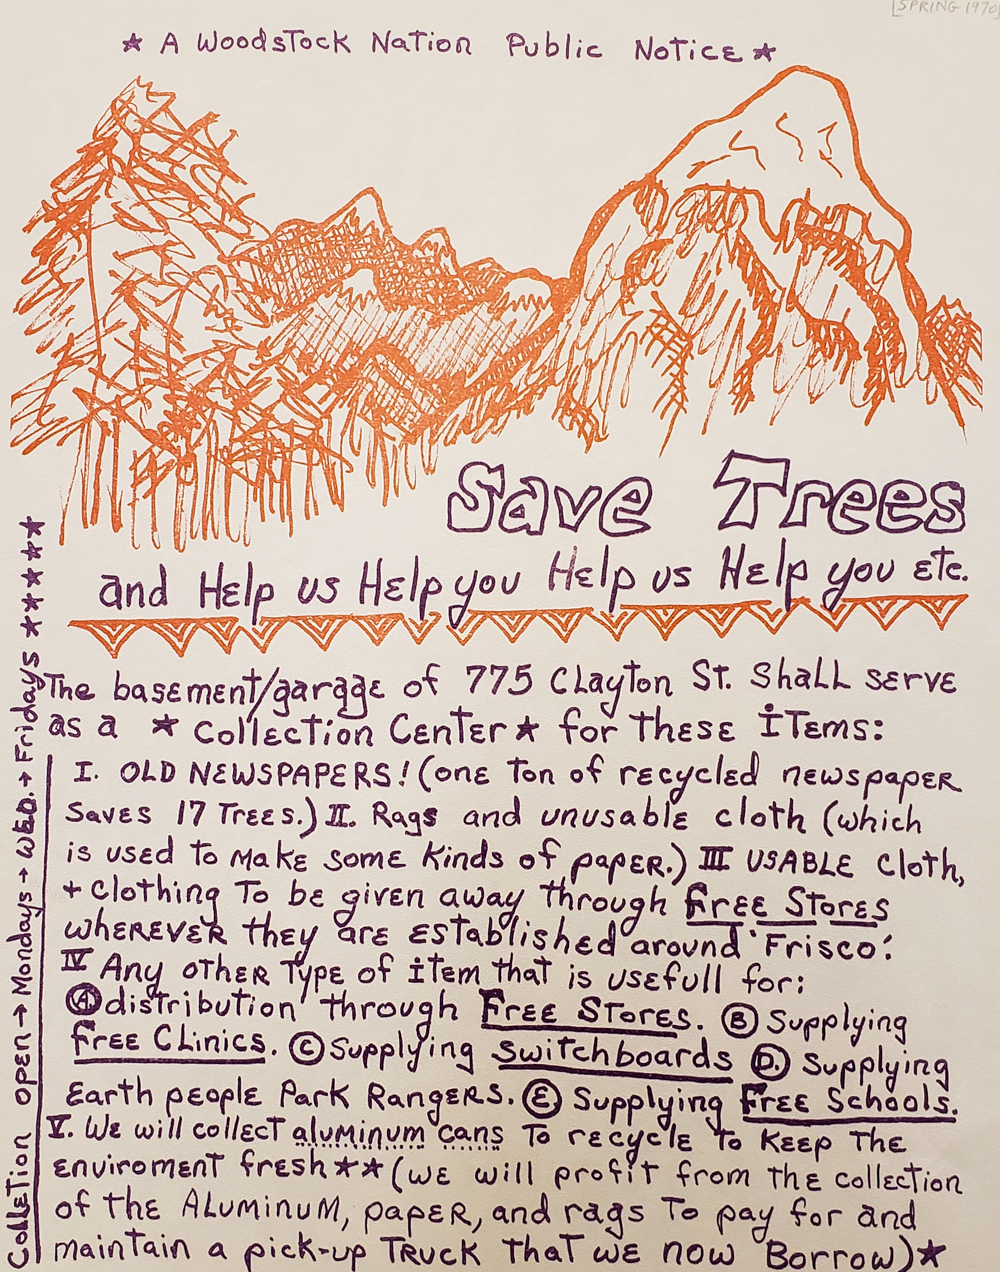 [SPRING 1970]
★ A Woodstock Nation Public Notice ★
Save Trees
and Help us Help you Help us Help you etc.
The basement/garage of 775 Clayton St. Shall serve
as a ★ Collection Center ★ for these items:
I. OLD NEWSPAPERS! (one ton of recycled newspaper
saves 17 Trees.) II. Rags and unusable cloth (which
is used to make some kinds of paper.) III USABLE cloth,
+ clothing to be given away through Free Stores
wherever they are established around 'Frisco:
IV Any other type of item that is usefull for:
Ⓐ distribution through Free Stores. Ⓑ Supplying
Free Clinics. Ⓒ Supplying Switchboards Ⓓ Supplying
Earth people Park Rangers. Ⓔ Supplying Free Schools.
V. We will collect aluminum cans to recycle to keep the
enviroment fresh ★★ (we will profit from the collection
of the Aluminum, paper, and rags to pay for and
maintain a pick-up truck that we now Borrow) ★
Colletion open → Mondays → Wed. → Fridays ★★★★★